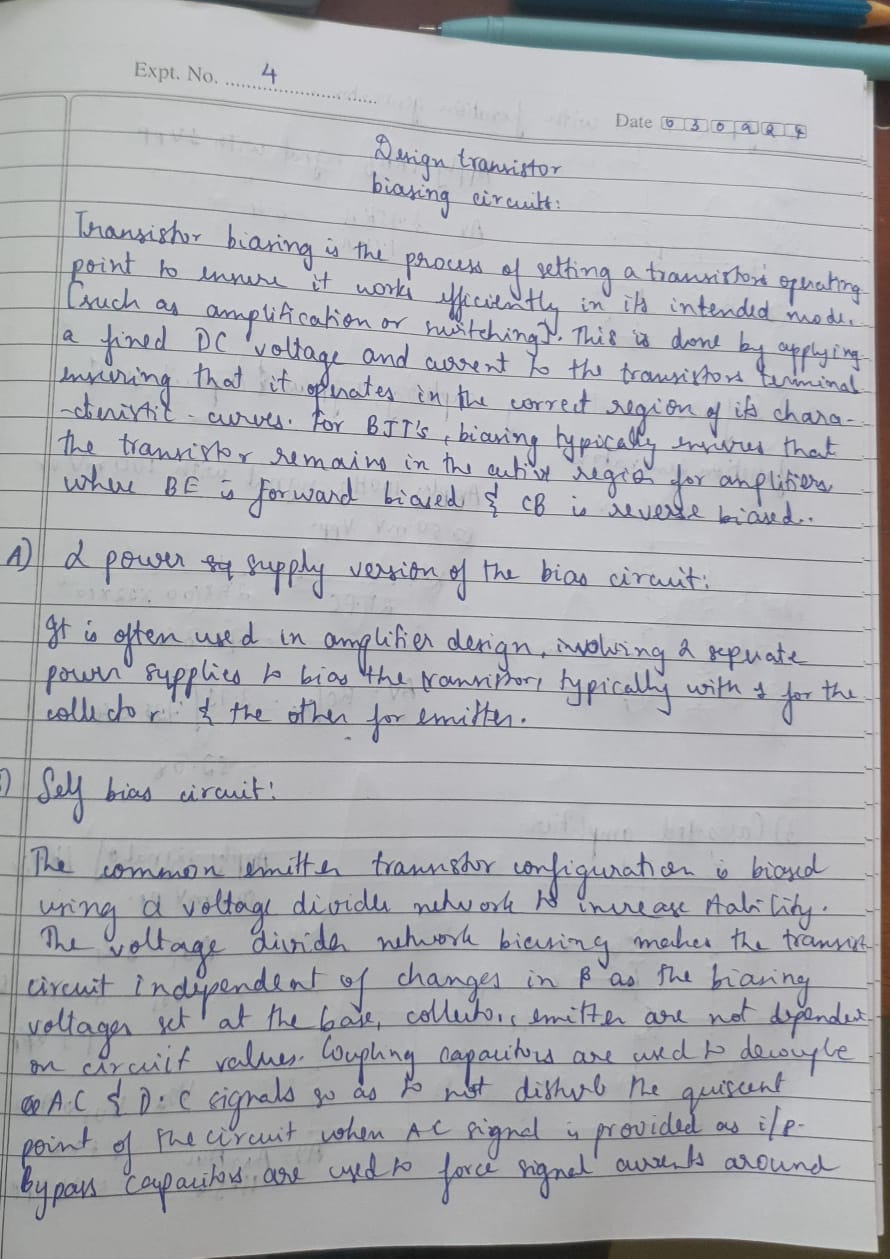 Expt. No. 4
Date 030924
Design transistor
biasing circuits:
Transistor biasing is the process of setting a transistors operating
point to ensure it works efficiently in its intended mode.
(such as amplification or switching). This is done by applying
a fixed DC voltage and current to the transistors terminal
ensuring that it operates in the correct region of its chara-
-cteristic - curves. For BJT's, biasing typically ensures that
the transistor remains in the active region for amplifiers
where BE is forward biased & CB is reverse biased..
A) 2 power supply version of the bias circuit:
It is often used in amplifier design, involving 2 seperate
power supplies to bias the transistor, typically with 1 for the
collector & the other for emitter.
Self bias circuit:
The common emitter transistor configuration is biased
using a voltage divider network to increase stability.
The voltage divider network biasing makes the transist
circuit independent of changes in β as the biasing
voltages set at the base, collector, emitter are not dependent
on circuit values. Coupling capacitors are used to decouple
A.C & D.C signals so as to not disturb the quiscent
point of the circuit when AC signal is provided as i/p.
bypass capacitors are used to force signal currents around